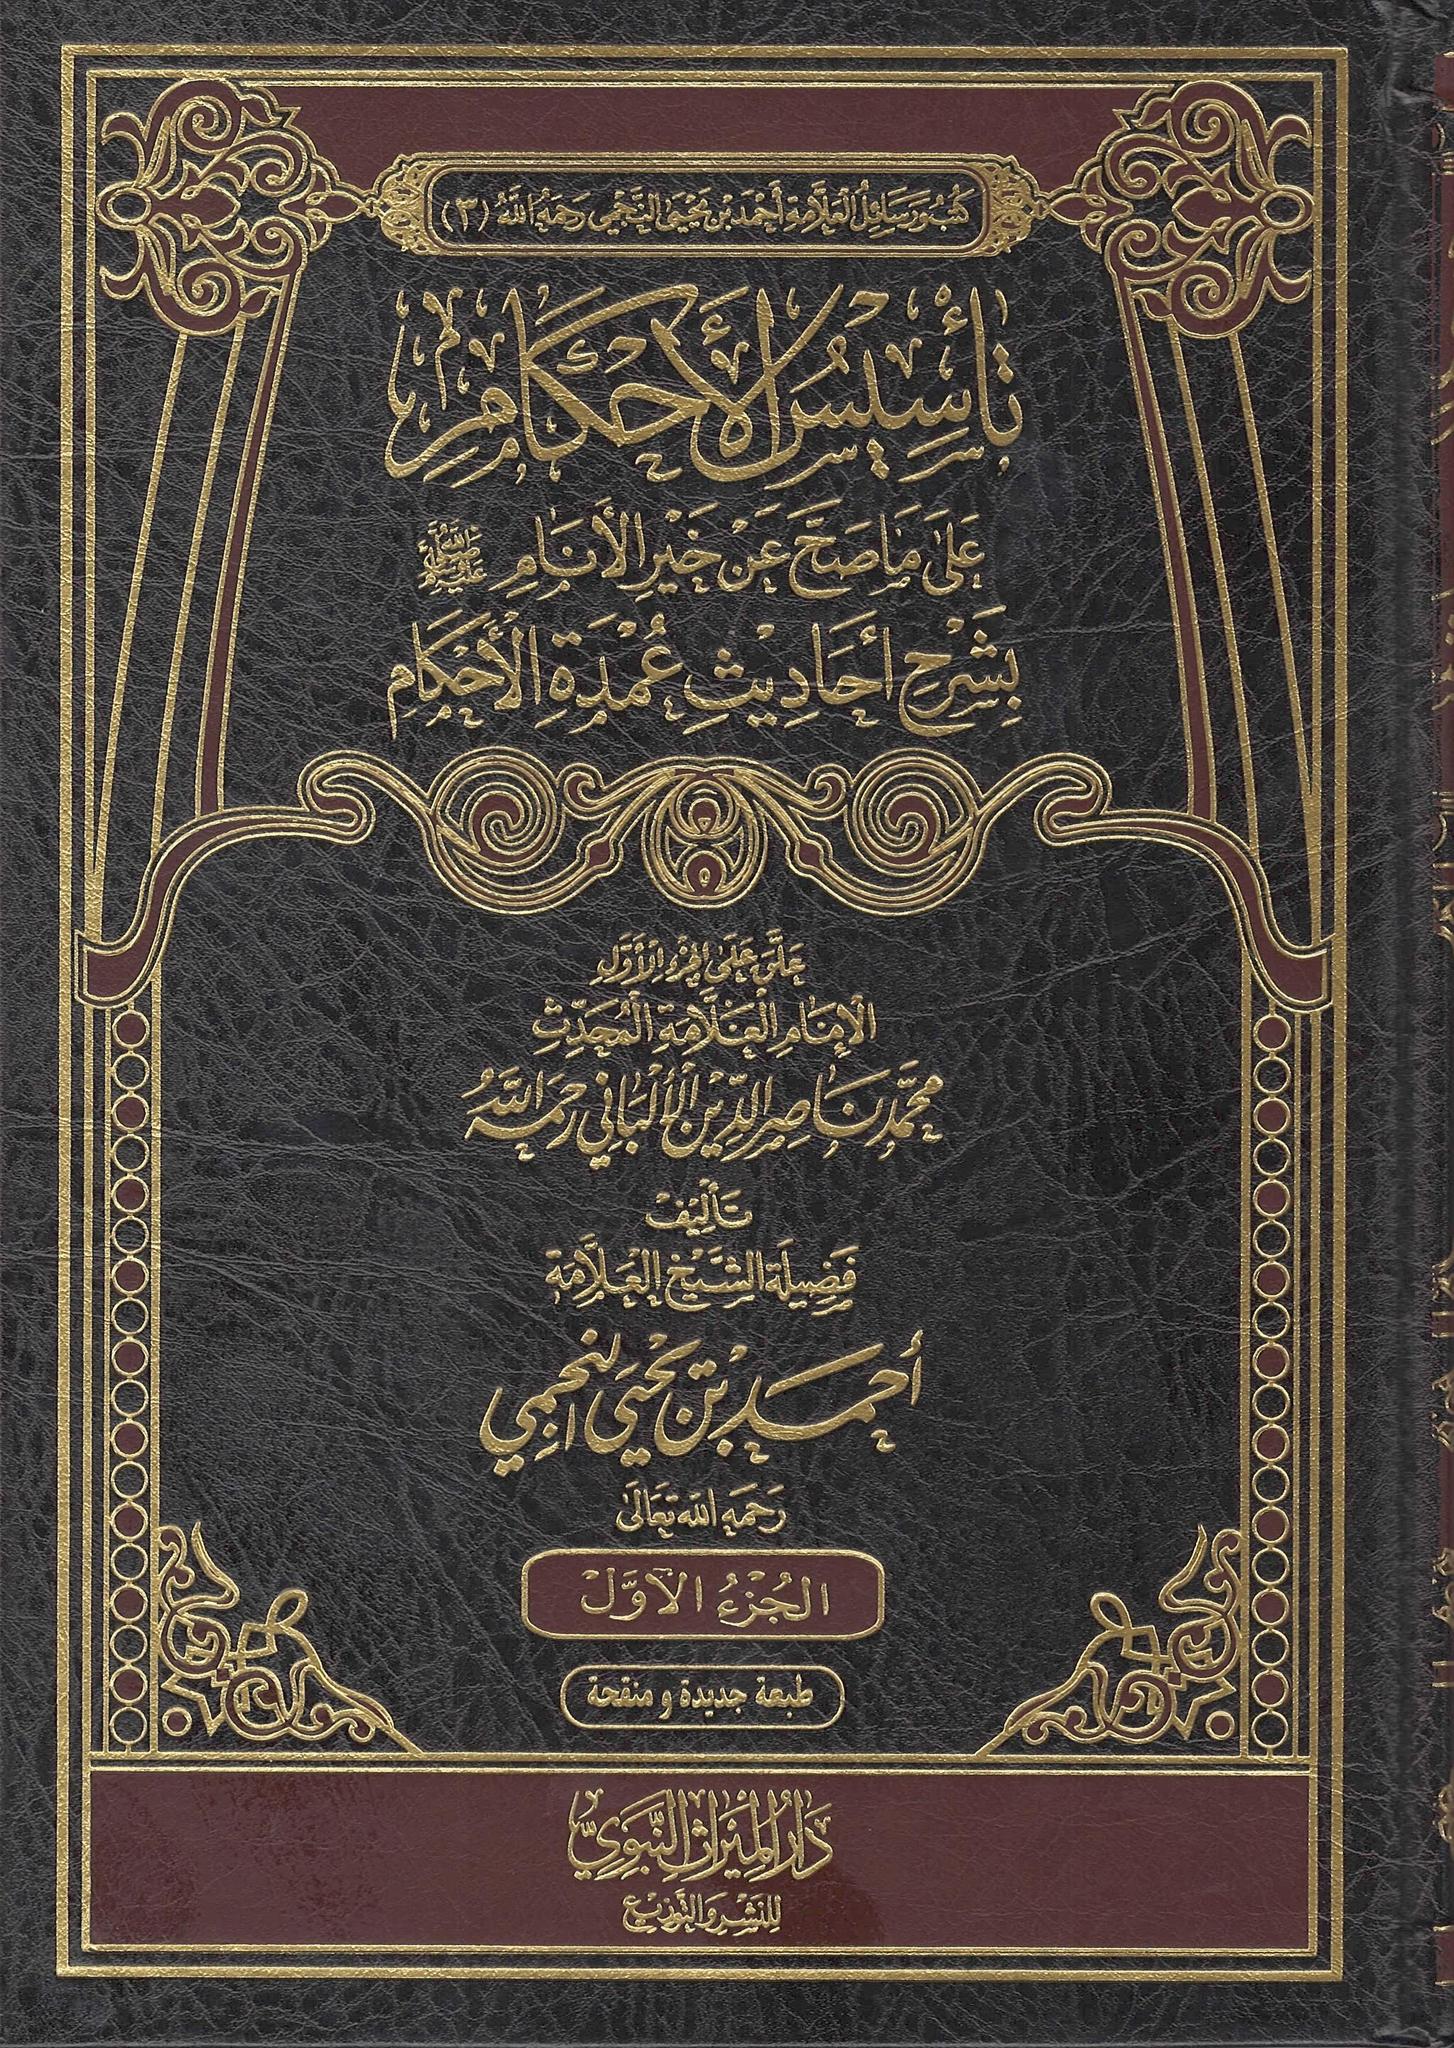 كتب ورسائل العلامة أحمد بن يحيى النجمي رحمه الله (٣)
تأسيس الأحكام
على ما صح عن خير الأنام ﷺ
بشرح أحاديث عمدة الأحكام
علق على الجزء الأول
الإمام العلامة المحدث
محمد ناصر الدين الألباني رحمه الله
تأليف
فضيلة الشيخ العلامة
أحمد بن يحيى النجمي
رحمه الله تعالى
الجزء الأول
طبعة جديدة و منقحة
دار الميراث النبوي
للنشر والتوزيع